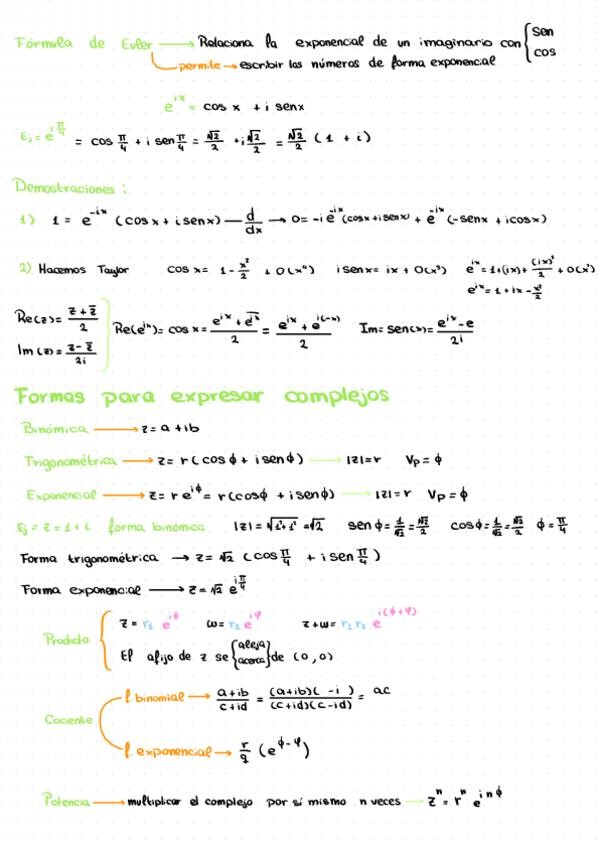 Fórmula de Euler → Relaciona la exponencial de un imaginario con { sen
cos
permite → escribir las números de forma exponencial
e^{ix} = cos x + i senx
Ej = e^{iπ/4} = cos π/4 + i sen π/4 = √2/2 + i√2/2 = √2/2 (1 + i)
Demostraciones:
1) 1 = e^{-ix} (cosx + isenx) — d/dx → 0= -i e^{-ix} (cosx+isenx) + e^{-ix} (-senx + icosx)
2) Hacemos Taylor cosx = 1 - x²/2 + O(x⁴) i senx = ix + O(x³) e^{ix} = 1+(ix)+ (ix)²/2 + O(x³)
e^{ix} = 1 + ix - x²/2
Re(z)= (z + z̅)/2
Im(z)= (z - z̅)/2i
Re(e^{ix})= cos x = (e^{ix} + \overline{e^{ix}})/2 = (e^{ix} + e^{i(-x)})/2 Im= sen(x)= (e^{ix} - e)/2i
Formas para expresar complejos
Binómica → z= a + ib
Trigonométrica → z= r (cos ϕ + i senϕ) → |z|=r Vp = ϕ
Exponencial → z= r e^{iϕ} = r(cosϕ + i senϕ) → |z|=r Vp = ϕ
Ej = z = 1 + i forma binómica |z| = √1²+1² = √2 sen ϕ = 1/√2 = √2/2 cosϕ = 1/√2 = √2/2 ϕ = π/4
Forma trigonométrica → z= √2 (cos π/4 + i sen π/4)
Forma exponencial → z = √2 e^{iπ/4}
Producto { z = r₁ e^{iϕ} ω= r₂ e^{iφ} z+w= r₁ r₂ e^{i(ϕ+φ)}
El afijo de z se {aleja
acerca} de (0,0)
Cociente
f. binomial → (a+ib)/(c+id) = (a+ib)( -i )/(c+id)(c-id) = ac
f. exponencial → r/q (e^{ϕ-φ})
Potencia → multiplicar el complejo por sí mismo n veces → z^n = r^n e^{inϕ}